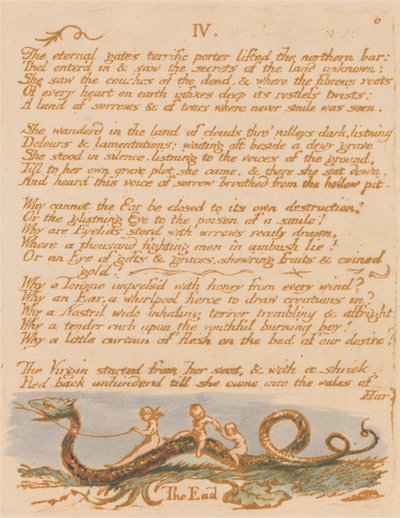 IV.
The eternal gates terrific porter lifted the northern bar:
Thel enterd in & saw the secrets of the land unknown;
She saw the couches of the dead, & where the fibrous roots
Of every heart on earth infixes deep its restless twists:
A land of sorrows & of tears where never smile was seen.
She wanderd in the land of clouds thro' valleys dark, listning
Dolours & lamentations: waiting oft beside a dewy grave
She stood in silence, listning to the voices of the ground,
Till to her own grave plot she came, & there she sat down,
And heard this voice of sorrow breathed from the hollow pit.
Why cannot the Ear be closed to its own destruction?
Or the glistning Eye to the poison of a smile!
Why are Eyelids stord with arrows ready drawn,
Where a thousand fighting men in ambush lie!
Or an Eye of gifts & graces, showring fruits & coined
gold!
Why a Tongue impress'd with honey from every wind?
Why an Ear, a whirlpool fierce to draw creations in?
Why a Nostril wide inhaling terror trembling & affright
Why a tender curb upon the youthful burning boy!
Why a little curtain of flesh on the bed of our desire?
The Virgin started from her seat, & with a shriek.
Fled back unhinderd till she came into the vales of
Har
The End